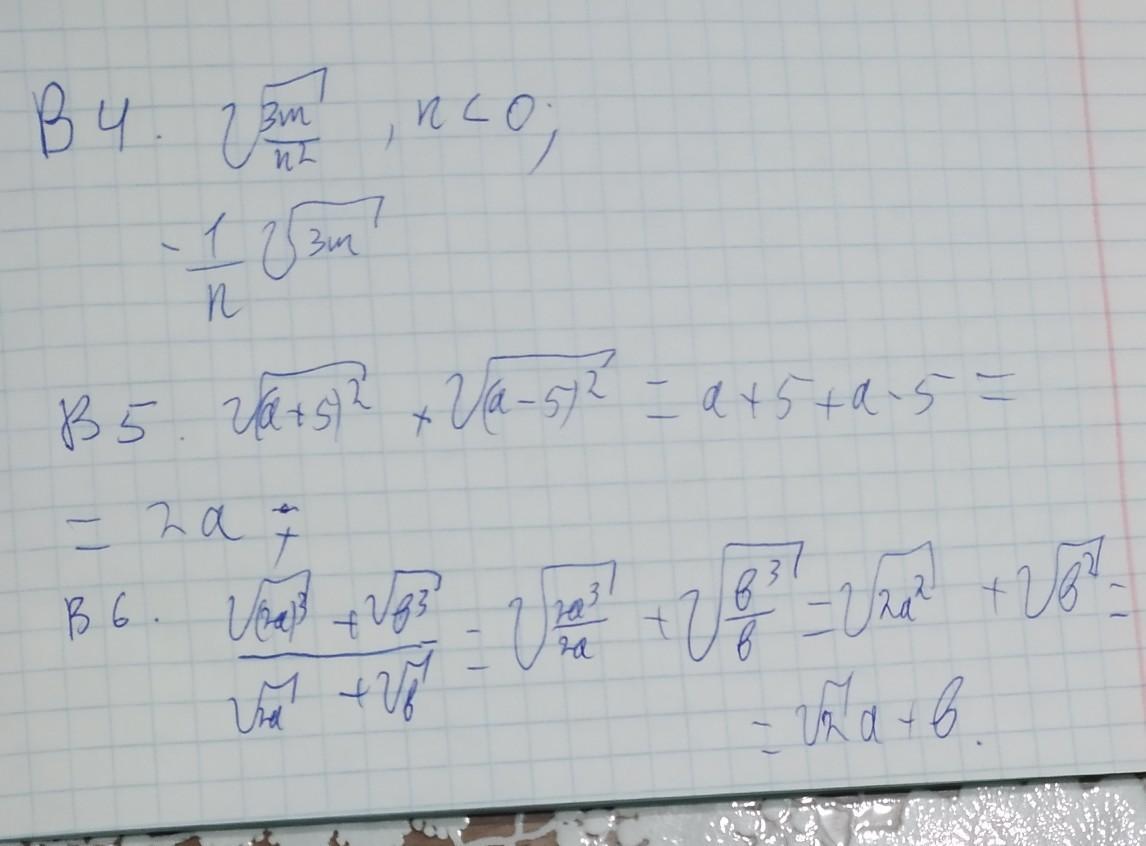 В 4. √(3m/n²), n < 0;
-1/n √3m
В 5. √(a+5)² + √(a-5)² = a+5+a-5 =
= 2a;
В 6. (√(2a)³ + √в³)/(√2a + √в) = √(2a³/2a) + √(в³/в) = √2a² + √в² =
= √2 a + в.